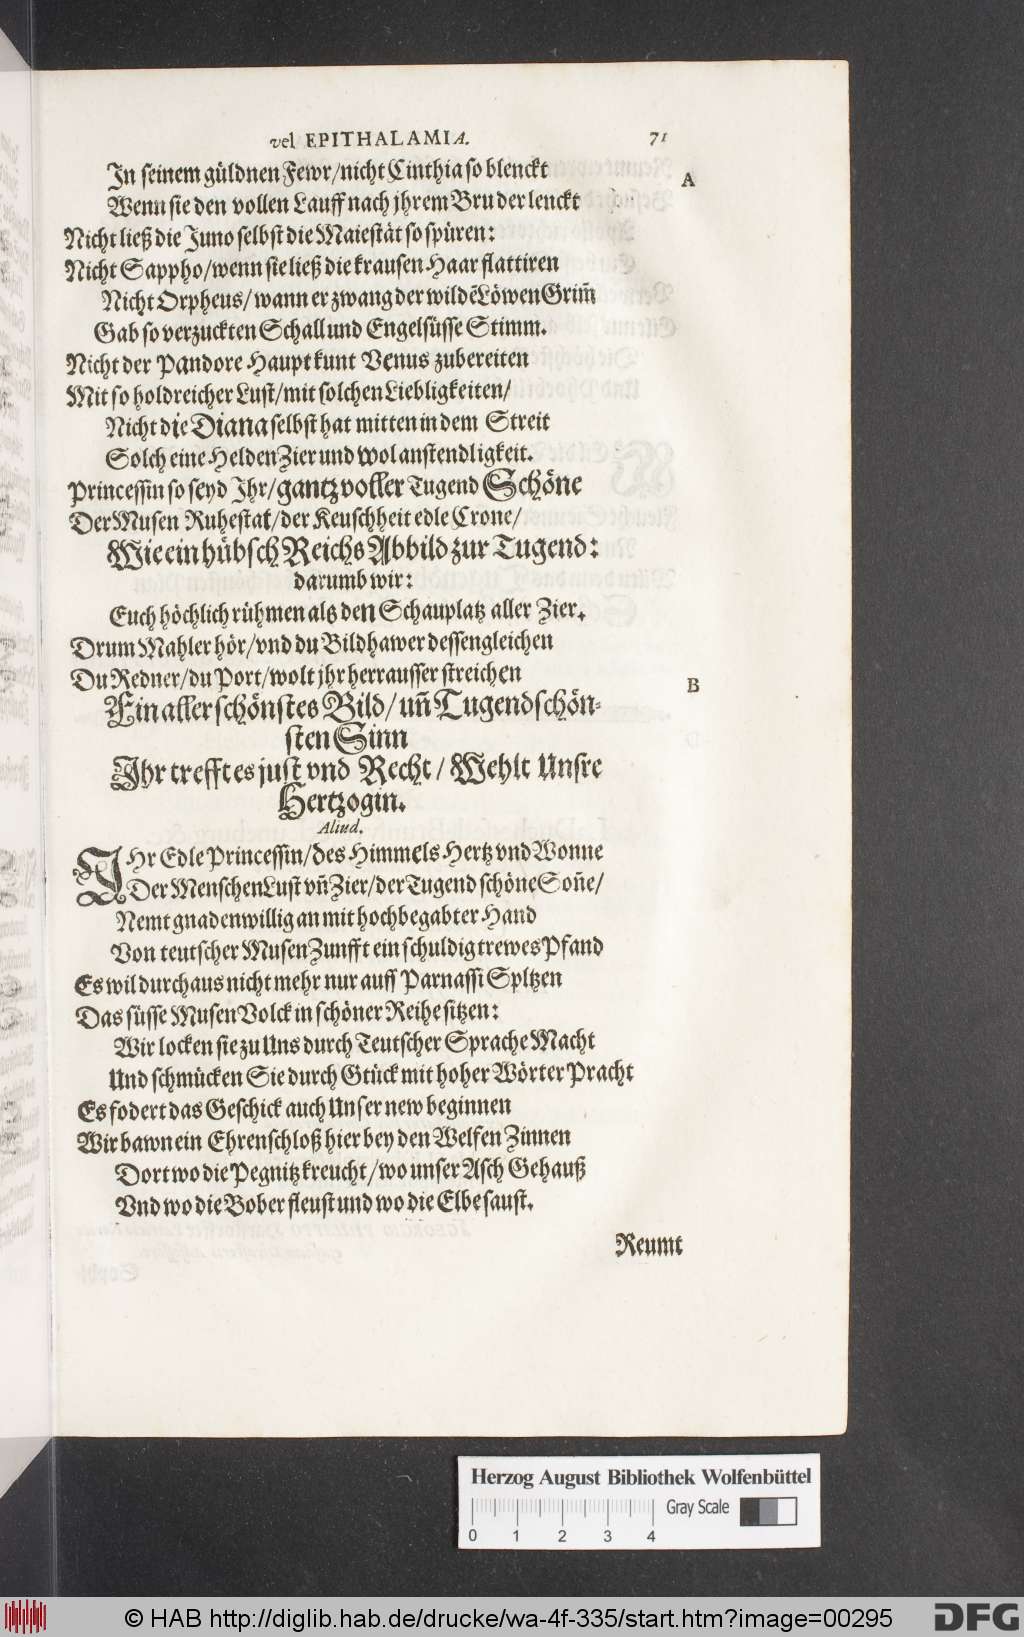 vel EPITHALAMIA. 71
In seinem güldnen Fewr/nicht Cinthia so blenckt
A
Wenn sie den vollen Lauff nach jhrem Bruder lenckt
Nicht ließ die Juno selbst die Maiestät so spüren:
Nicht Sappho/wenn sie ließ die krausen Haar flattiren
Nicht Orpheus/wann er zwang der wildē Löwen Grim̄
Gab so verzuckten Schall und Engelsüsse Stimm.
Nicht der Pandore Haupt kunt Venus zubereiten
Mit so holdreicher Lust/mit solchen Liebligkeiten/
Nicht die Diana selbst hat mitten in dem Streit
Solch eine Helden Zier und wol anstendligkeit.
Princessin so seyd Jhr/gantz voller Tugend Schöne
Der Musen Ruhestat/der Keuschheit edle Crone/
Wie ein hübsch Reichs Abbild zur Tugend:
darumb wir:
Euch höchlich rühmen als den Schauplatz aller Zier.
Drum Mahler hör/vnd du Bildhawer dessengleichen
Du Redner/du Port/wolt jhr herrausser streichen
B
Ein allerschönstes Bild/un̄ Tugendschön-
sten Sinn
Jhr trefft es just vnd Recht/Wehlt Unsre
Hertzogin.
Aliud.
JHr Edle Princessin/des Himmels Hertz vnd Wonne
Der Menschen Lust vn̄ Zier/der Tugend schöne Son̄e/
Nemt gnadenwillig an mit hochbegabter Hand
Von teutscher Musen Zunfft ein schuldig trewes Pfand
Es wil durchaus nicht mehr nur auff Parnassi Spltzen
Das süsse Musen Volck in schöner Reihe sitzen:
Wir locken sie zu Uns durch Teutscher Sprache Macht
Und schmücken Sie durch Gtück mit hoher Wörter Pracht
Es fodert das Geschick auch Unser new beginnen
Wir bawn ein Ehrenschloß hier bey den Welfen Zinnen
Dort wo die Pegnitz kreucht/wo unser Asch Gehauß
Vnd wo die Bober fleust und wo die Elbe saust.
Reumt
Herzog August Bibliothek Wolfenbüttel
Gray Scale
0 1 2 3 4
© HAB http://diglib.hab.de/drucke/wa-4f-335/start.htm?image=00295
DFG